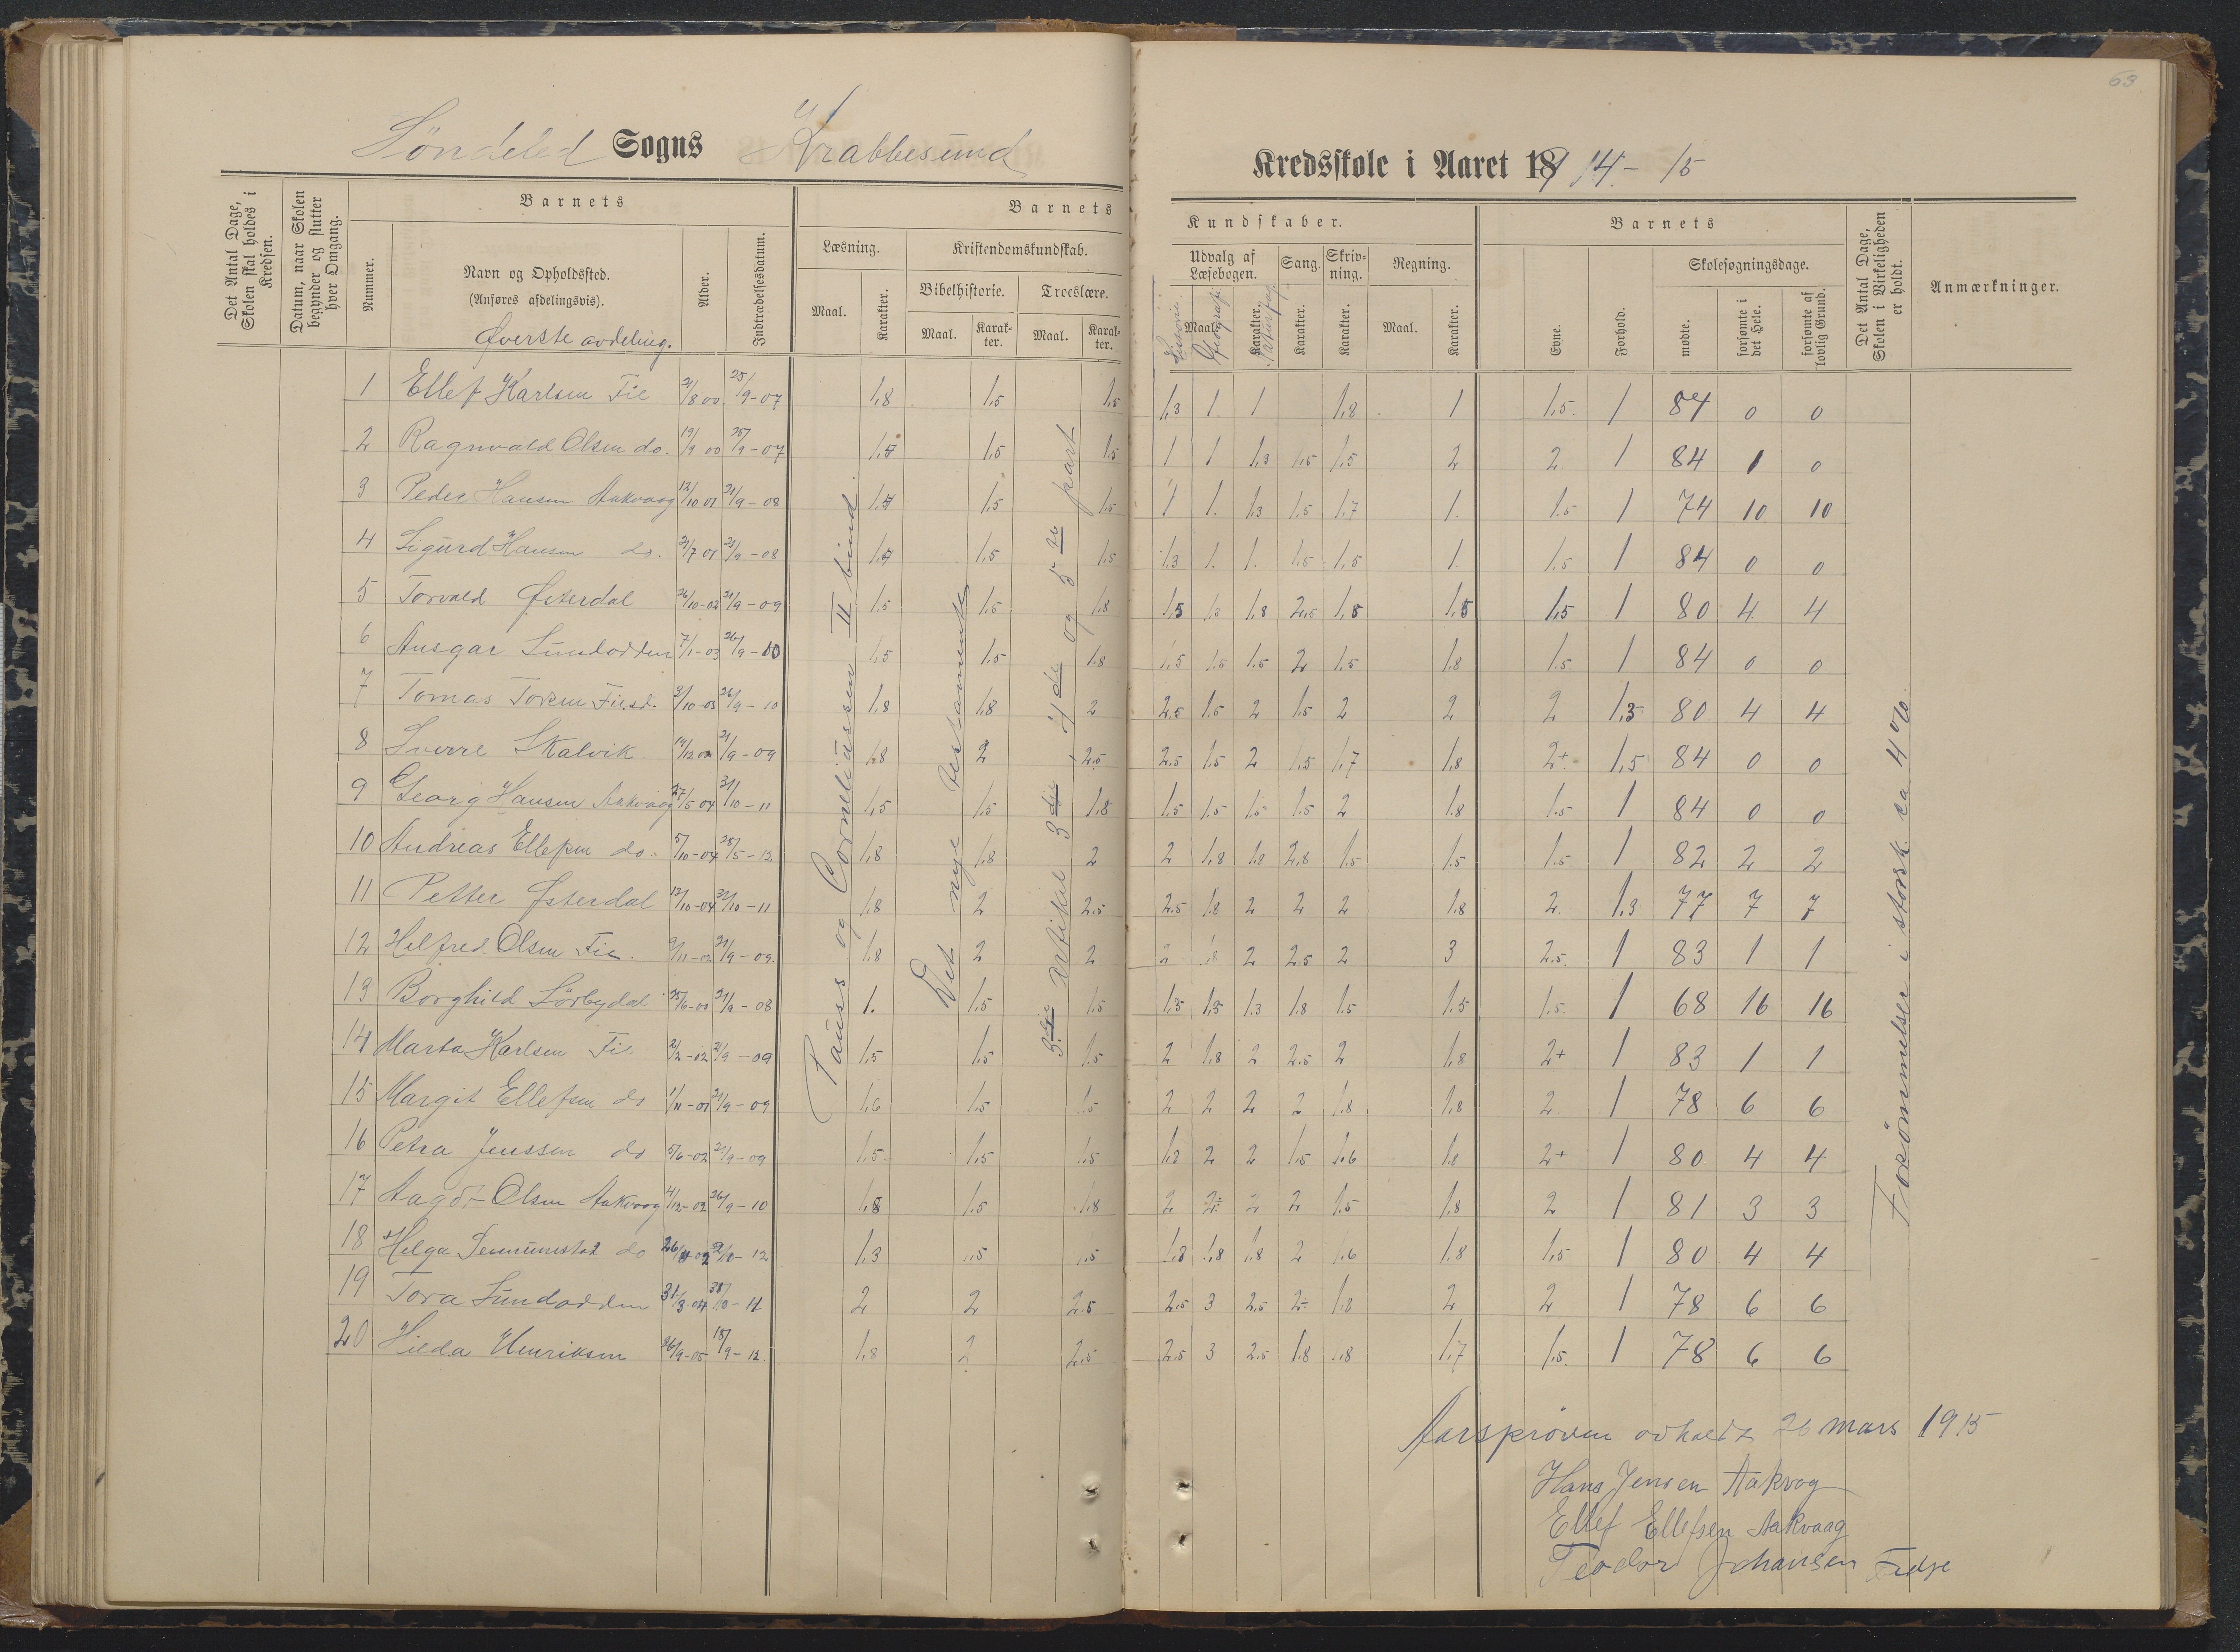 63
Söndeled Sogns Krabbesund Kredsskole i Aaret 1914-15
Det Antal Dage, Skolen skal holdes i Kredsen.
Datum, naar Skolen begynder og slutter hver Omgang.
Barnets
Nummer.
Navn og Opholdssted.
(Anføres afdelingsvis).
Øverste avdeling.
Alder.
Indtrædelsesdatum.
Barnets Kundskaber.
Læsning.
Maal.
Karakter.
Kristendomskundskab.
Bibelhistorie.
Maal.
Karakter.
Troeslære.
Maal.
Karakter.
Udvalg af Læsebogen.
Historie
Maal.
Geografi
Karakter.
Naturfag
Sang.
Karakter.
Skrivning.
Karakter.
Regning.
Maal.
Karakter.
Barnets
Evne.
Forhold.
Skolesøgningsdage.
mødte.
forsømte i det Hele.
forsømte af lovlig Grund.
Det Antal Dage, Skolen i Virkeligheden er holdt.
Anmærkninger.
1 Ellef Karlsen Fie 21/8 00 25/9-07 1,8 1,5 1,5 1,3 1 1 1,8 1 1,5 1 84 0 0
2 Ragnvald Olsen do. 19/9 00 25/9-07 1,5 1,5 1 1 1,3 1,5 1,5 2 2 1 84 1 0
3 Peder Hansen Aakvaag 12/10 01 21/9-08 1,5 1,5 1 1 1,3 1,5 1,7 1 1,5 1 74 10 10
4 Sigurd Hansen do. 21/9-08 1,5 1,5 1,3 1 1 1,5 1,5 1 1,5 1 84 0 0
5 Torvald Østerdal 26/10-02 21/9-09 1,5 1,5 1,8 1,5 1,8 1,8 2,5 1,8 1,5 1,5 1 80 4 4
6 Ansgar Sundodden 7/1-03 26/9-10 1,5 1,5 1,8 1,5 1,5 1,5 2 1,5 1,8 1,5 1 84 0 0
7 Tomas Torsen Fie sd. 3/10-03 26/9-10 1,8 1,8 2 2,5 1,5 2 1,5 2 2 2 1,3 80 4 4
8 Sverre Skalvik 21/9-09 1,8 2 2,5 2,5 1,5 2 1,5 1,7 1,8 2+ 1,5 84 0 0
9 Georg Hansen Aakvaag 27/5 04 31/10-11 1,5 1,5 1,8 1,5 1,5 1,5 1,5 2 1,8 1,5 1 84 0 0
10 Andreas Ellefsen do. 5/10-04 28/5-12 1,8 1,8 2 2 1,8 1,8 2,8 1,5 1,5 1,5 1 82 2 2
11 Petter Østerdal 13/10-04 31/10-11 1,8 2 2,5 2,5 1,8 2 2 2 1,8 2 1,3 77 7 7
12 Helfred Olsen Fie. 9/11-02 21/9-09 1,8 2 2 2 1,8 2 2,5 2 3 2,5 1 83 1 1
13 Borghild Sörbydal 25/6-00 21/9-08 1. 1,5 1,5 1,3 1,3 1,3 1,8 1,5 1,5 1,5 1 68 16 16
14 Marta Karlsen Fie 2/2-02 21/9-09 1,5 1,5 1,5 2 1,8 2 2,5 2 1,8 2+ 1 83 1 1
15 Margit Ellefsen do 1/11-01 21/9-09 1,6 1,5 1,5 2 2 2 2 1,8 1,8 2 1 78 6 6
16 Petra Jenssen do 5/6-02 21/9-09 1,5 1,5 1,5 1,8 2 2 1,5 1,6 1,8 2+ 1 80 4 4
17 Aagot Olsen Aakvaag 4/12-02 26/9-10 1,8 1,5 1,8 2 2÷ 2 2 1,5 1,8 2 1 81 3 3
18 Helga do 1,3 1,5 1,5 1,8 1,8 1,8 2 1,6 1,8 1,5 1 80 4 4
19 Tora Sundodden 31/3-04 2 2 2,5 2,5 3 2,5 2÷ 1,8 2 2 1 78 6 6
20 Hilda Henriksen 26/9-05 18/9-12 1,8 2 2,5 2,5 3 2,5 1,8 1,8 1,7 1,5 1 78 6 6
Pauss og Corneliussen III bind
Det nye testamente
3dje artikel 3dje, 4de og 5te part
Forsömmelser i störk. ca 4%.
Aarspröven avholdt 26 mars 1915
Hans Jensen Aakvog
Ellef Ellefsen Aakvaag
Teodor Johansen Fidje